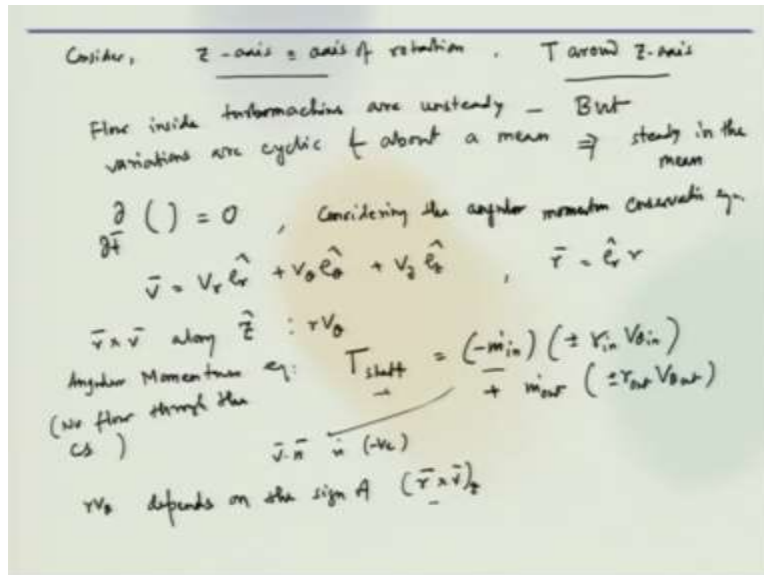 Consider, Z-axis = axis of rotation . T around Z-axis
Flow inside turbomachine are unsteady - But
variations are cyclic & about a mean ⇒ steady in the
mean
∂/∂t ( ) = 0 , Considering the angular momentum conservatn eqn.
v̄ = Vr êr + Vθ êθ + Vz êz , r̄ = êr r
r̄ x v̄ along ẑ : rVθ
Angular Momentum eq: T shaft = (-ṁin) (± rin Vθin)
(No flow through the + ṁout (± rout Vθout)
CS ) v̄.n̄ is (-ve)
rVθ depends on the sign of (r̄ x v̄)z